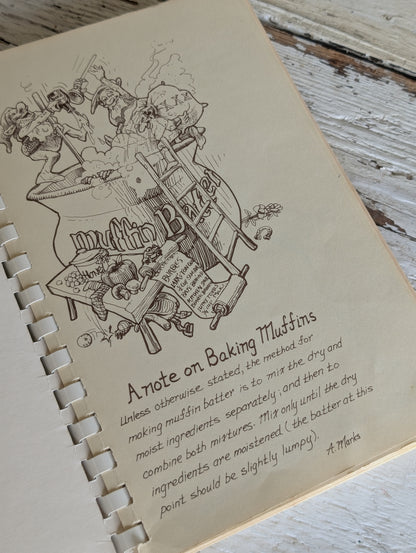 muffin Batter
A note on Baking Muffins
Unless otherwise stated, the method for
making muffin batter is to mix the dry and
moist ingredients separately, and then to
combine both mixtures. Mix only until the dry
ingredients are moistened (the batter at this
point should be slightly lumpy).
A. Marks